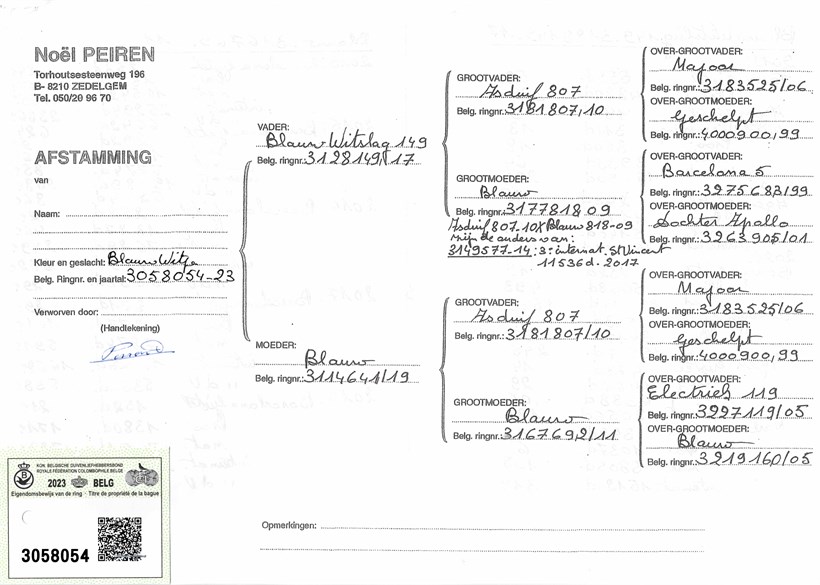 Noël PEIREN
Torhoutsesteenweg 196
B- 8210 ZEDELGEM
Tel. 050/20 96 70
AFSTAMMING
van
Naam:
Kleur en geslacht: Blauw Witp
Belg. Ringnr. en jaartal: 3058054-23
Verworven door:
(Handtekening)
VADER:
Blauw Witslag 149
Belg. ringnr.: 3128149,17
MOEDER:
Blauw
Belg. ringnr.: 3114641/19
GROOTVADER:
Asduif 807
Belg. ringnr.: 3181807,10
GROOTMOEDER:
Blauw
Belg. ringnr.: 3177818 09
Asduif 807-10 X Blauw 818-09
zijn de ouders van:
3149577-14: 3: internat. St Vincent
11536d. 2017
GROOTVADER:
Asduif 807
Belg. ringnr.: 3181807/10
GROOTMOEDER:
Blauw
Belg. ringnr.: 3167692/11
OVER-GROOTVADER:
Majoor
Belg. ringnr.: 3183525/06
OVER-GROOTMOEDER:
Geschelpt
Belg. ringnr.: 4000900,99
OVER-GROOTVADER:
Barcelona 5
Belg. ringnr.: 3275683/99
OVER-GROOTMOEDER:
Dochter Apollo
Belg. ringnr.: 3263905/01
OVER-GROOTVADER:
Majoor
Belg. ringnr.: 3183525/06
OVER-GROOTMOEDER:
Geschelpt
Belg. ringnr.: 4000900,99
OVER-GROOTVADER:
Electriek 119
Belg. ringnr.: 3227119/05
OVER-GROOTMOEDER:
Blauw
Belg. ringnr.: 3219160/05
Opmerkingen:
KON. BELGISCHE DUIVENLIEFHEBBERSBOND
ROYALE FÉDÉRATION COLOMBOPHILE BELGE
2023 BELG
Eigendomsbewijs van de ring - Titre de propriété de la bague
3058054